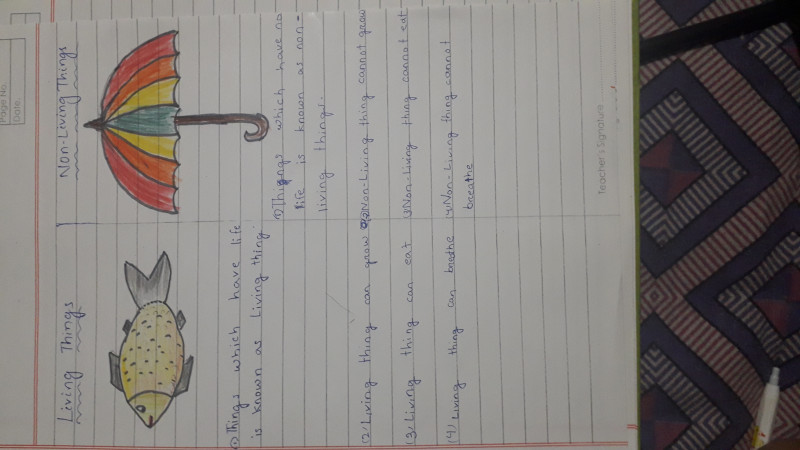 Page No.
Date.
Living Things
Non-Living Things
① Things which have life
is known as Living thing.
① Things which have no
life is known as non-
living things.
(2) Living thing can grow
② Non-Living thing cannot grow
(3) Living thing can eat
3) Non-Living thing cannot eat
(4) Living thing can breathe
4) Non-Living thing cannot
breathe
Teacher's Signature